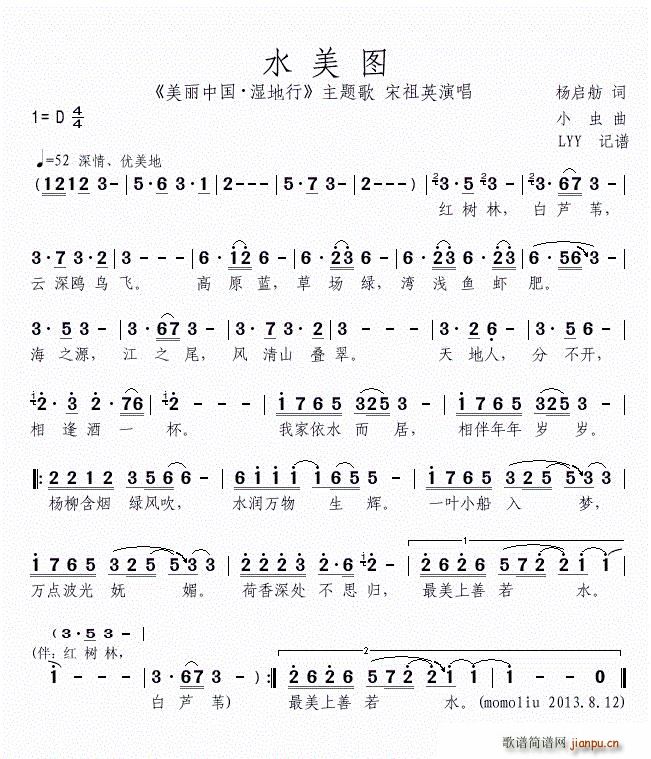 水美图
《美丽中国·湿地行》主题歌 宋祖英演唱
杨启舫 词
1=D 4/4
小虫 曲
LYY 记谱
♩=52 深情、优美地
(1212 3- | 5·6 3·1 | 2--- | 5·7 3- | 2--- ) | 3·5 3- | 3·67 3- |
红树林，白芦苇，
3·7 3·2 | 3--- | 6·12 6·23 | 6·23 6·23 | 6·56 3- |
云深鸥鸟飞。高原蓝，草场绿，湾浅鱼虾肥。
3·5 3- | 3·67 3- | 3·7 3·2 | 3--- | 3·2 6- | 3·0 5- |
海之源，江之尾，风清山叠翠。天地人，分不开，
2·3 2·76 | 2--- | 1765 325 3- | 1765 325 3- |
相逢酒一杯。我家依水而居，相伴年年岁岁。
|: 2212 3566- | 6111 1655- | 1765 325 533 |
杨柳含烟 绿风吹，水润万物生辉。一叶小船入梦，
1765 325 533 | 2223 2·6 2- | 2626 5722 11 |
1
万点波光妩媚。荷香深处不思归，最美上善若水。
(3·5 3-
(伴：红树林，
1--- | 3·67 3- ) :| 2626 5722 11 | 1--0 |
2
白芦苇) 最美上善若水。(momoliu 2013.8.12)
歌谱简谱网
jianpu.cn